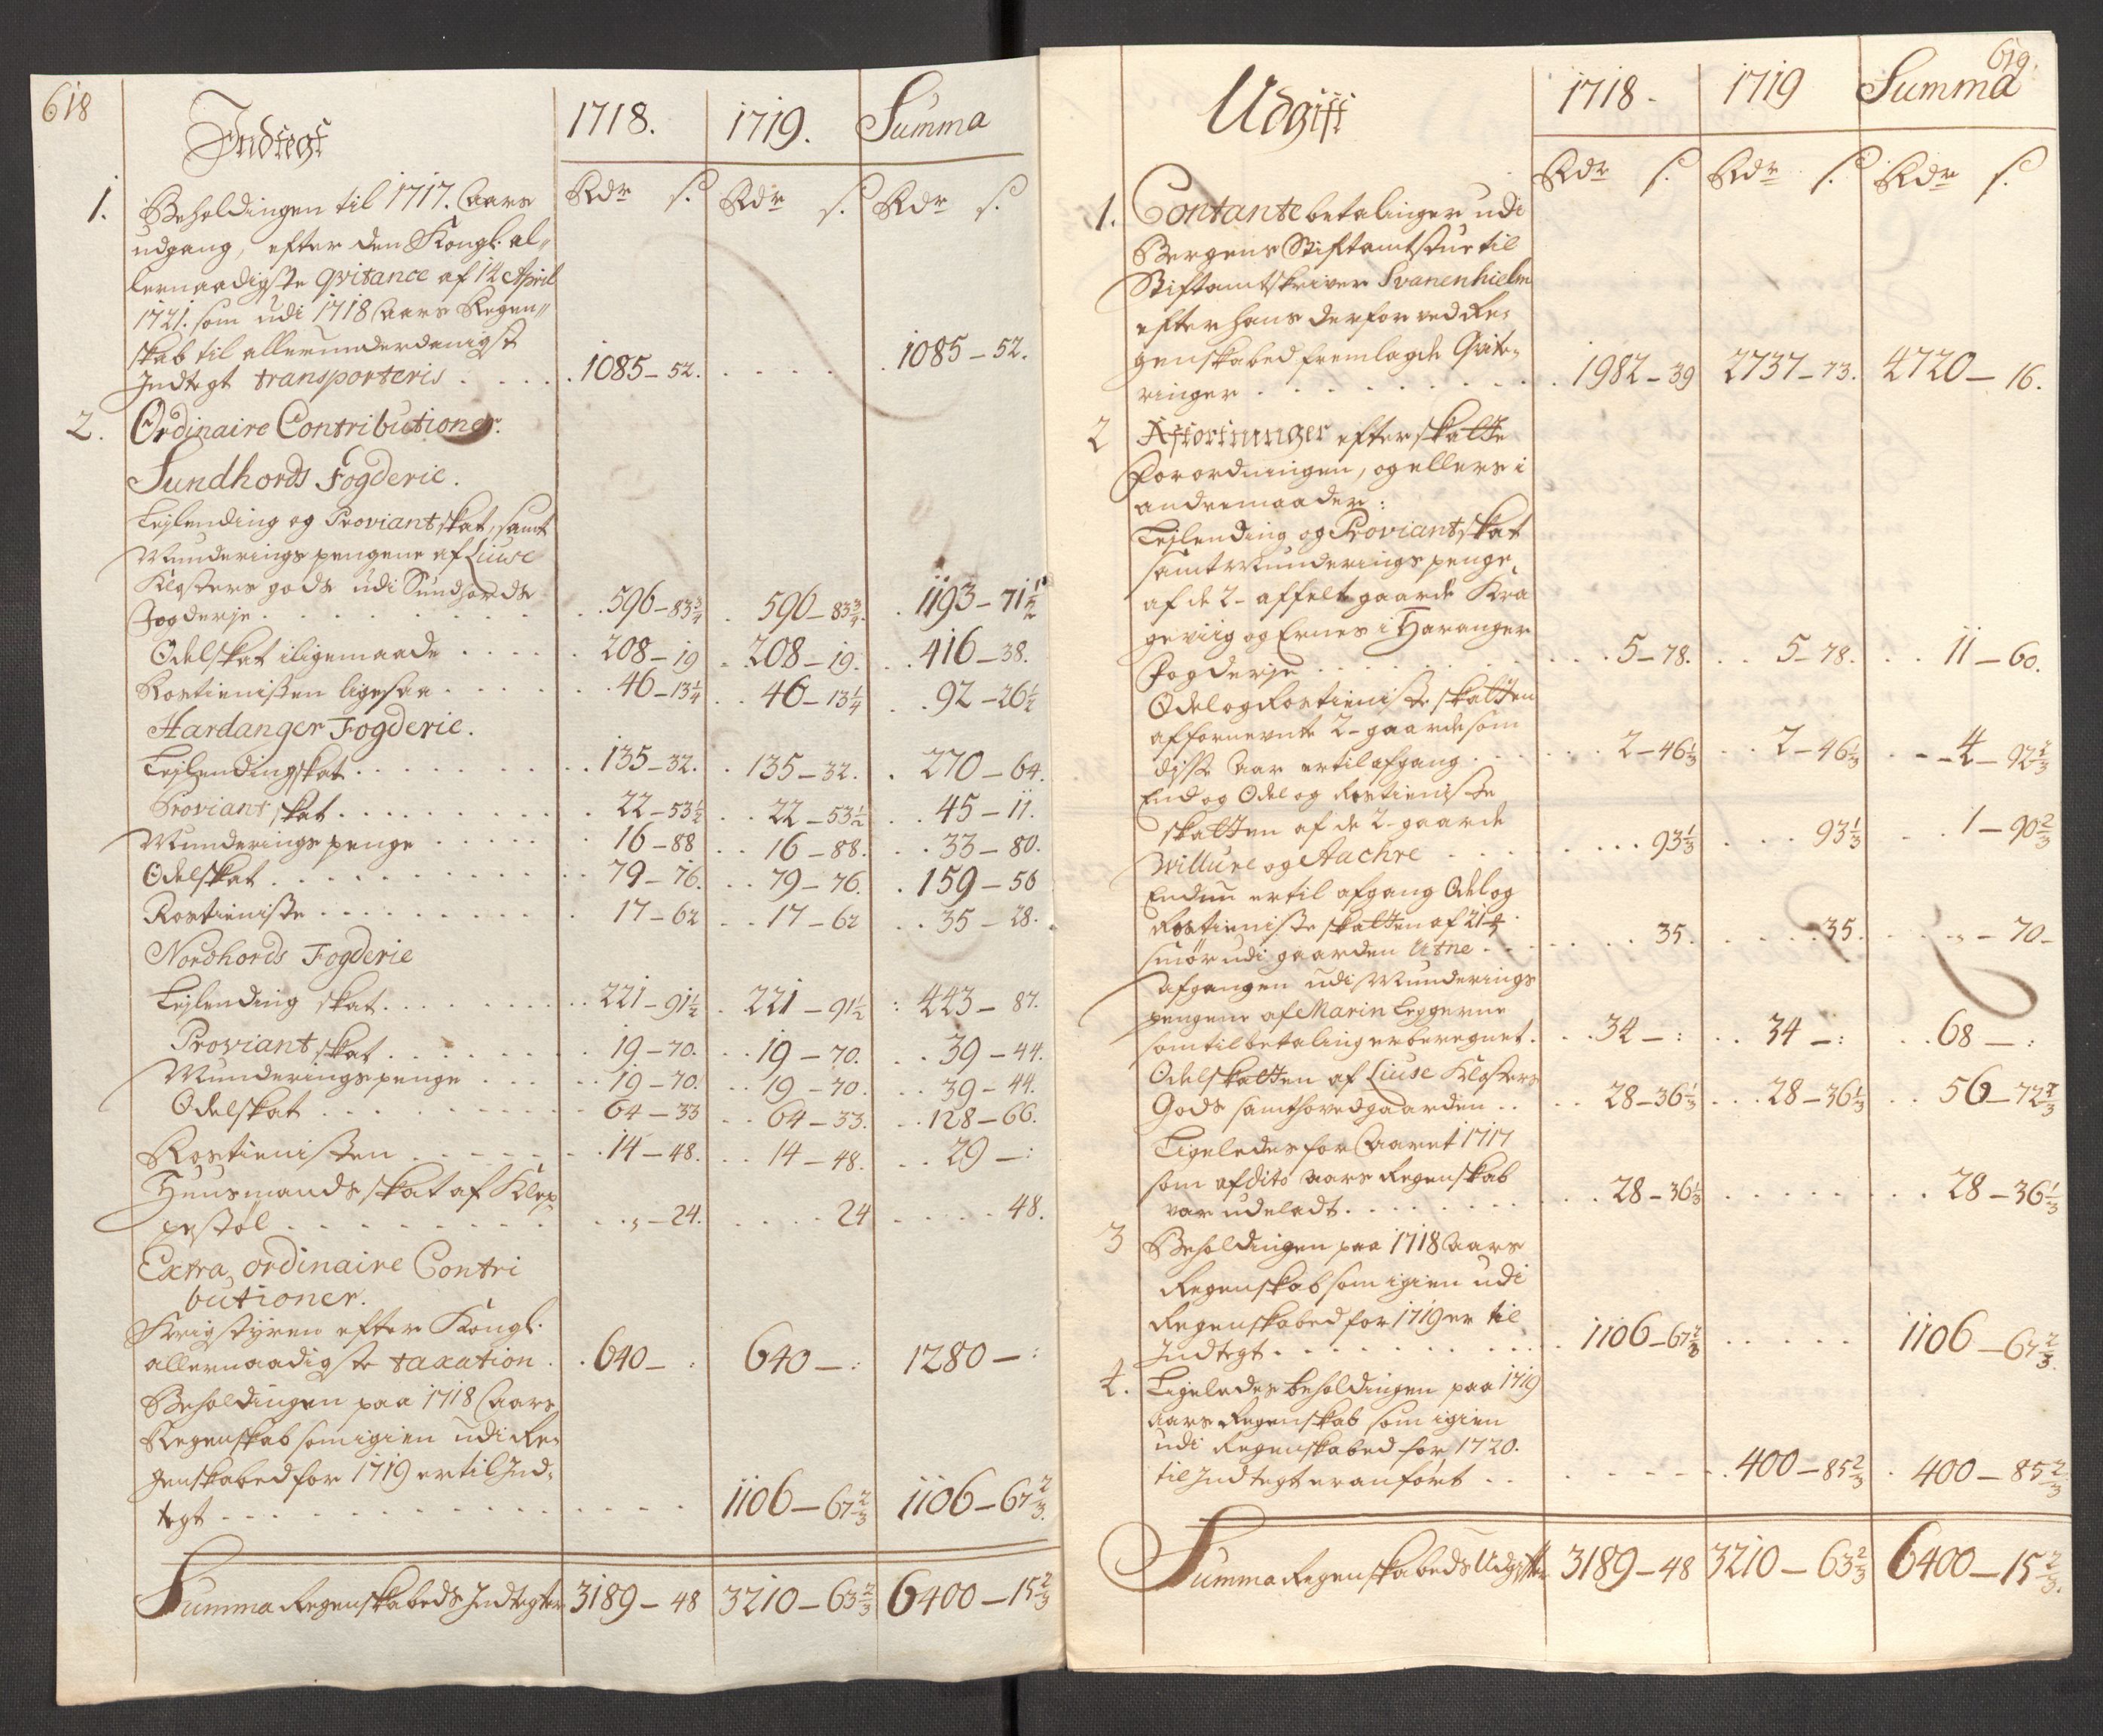 618
Indtegt 1718. 1719. Summa
Rdr s. Rdr s. Rdr s.
1. Beholdingen til 1717. Aars
udgang, efter den Kongl. al„
lernaadigste qvitance af 12 April
1721. som udi 1718 Aars Regen„
skab til allerunderdanigst
Indtegt transporteris . . . . . 1085 – 52. . . . . . 1085 – 52.
2. Ordinaire Contributioner.
Sundhords Fogderie.
Leylending og Proviant skat, samt
Munderings pengene af Liuse
Klosters gods udi Sundhords
Fogderje . . . . . . 596 – 83 3/4 . 596 – 83 3/4 . 1193 – 71 1/2
Odelskat iligemaade . . . . . 208 – 19 . 208 – 19 . . 416 – 38.
Rostienisten ligesaa . . . . . 46 – 13 1/4 . . 46 – 13 1/4 . . 92 – 26 1/2
Hardanger Fogderie.
Leylendingskat . . . . . . . 135 – 32. . 135 – 32. . 270 – 64.
Proviant skat . . . . . . . . 22 – 53 1/2 . . 22 – 53 1/2 . . 45 – 11.
Munderings penge . . . . . 16 – 88 . . 16 – 88. . . 33 – 80.
Odelskat . . . . . . . . . . 79 – 76. . . 79 – 76. . 159 – 56
Rostieniste . . . . . . . . . 17 – 62 . . 17 – 62 . . 35 – 28.
Nordhords Fogderie
Leylending skat . . . . . . 221 – 91 1/2 . 221 – 91 1/2 : 443 – 87.
Proviant skat . . . . . . . 19 – 70. . . 19 – 70. . . 39 – 44.
Munderings penge . . . . . 19 – 70. . . 19 – 70. . . 39 – 44.
Odelskat . . . . . . . . 64 – 33 . . 64 – 33. . . 128 – 66.
Rostienisten . . . . . . . 14 – 48. . . 14 – 48. . . 29 – :
Huusmands skat af Klep
pestøl . . . . . . . . . . „ – 24. . . . . 24 . . . . . 48.
Extra ordinaire Contri
butioner.
Krigstyren efter Kongl.
allernaadigste taxation . . 640 – : 640 – : 1280 – :
Beholdingen paa 1718 Aars
Regenskab som igien udi Re„
genskabed for 1719 er til Ind„
tegt . . . . . . . . . . . . . . 1106 – 67 2/3 1106 – 67 2/3.
Summa Regenskabeds Indtegter 3189 – 48 3210 – 63 2/3 6400 – 15 2/3
619.
Udgift 1718. 1719 Summa
Rdr s. Rdr s. Rdr s.
1. Contante betalinger udi
Bergens Stiftamtstue til
Stiftamtskriver Svanenhielm
efter hans derfor ved Re„
genskabed fremlagde Qvite„
ringer . . . . . . . . . . 1982 – 39 2737 – 73. 4720 – 16.
2 Afkortninger efter skatte
Forordningen, og ellers i
andre maader:
Leylending og Proviant skat
samt Munderings penge
af de 2– affelt gaarde Kra
geviig og Ernes i Haranger
Fogderje . . . . . . . . . 5 – 78. . . 5 – 78. . . 11 – 60.
Odel og Rostieniste skatten
af fornevnte 2– gaarde som
disse Aar er til afgang . . . . . 2 – 46 1/3 . . 2 – 46 1/3 . . 4 – 92 2/3
End og Odel og Rostieniste
skatten af de 2– gaarde
Willure og Aachre . . . . . . 93 1/3 . . . 93 1/3 . . 1 – 90 2/3
Endnu er til afgang Odel og
Rostieniste skatten af 21 
smør udi gaarden Utne . . . . . . 35. . . . . 35. . . „ – 70 –
Afgangen udi Munderings
pengene af Marin Leggerne
som til betaling er beregnet . . . 34 – : . . 34 – : . . 68 – :
Odelskatten af Liuse Klosters
Gods samt hovedgaarden . . . . 28 – 36 1/3 . . . 28 – 36 1/3 . . 56 – 72 2/3
Ligeledes for Aaret 1717
som af dito Aars Regenskab
var udeladt . . . . . . . . . 28 – 36 1/3 . . . . . . . 28 – 36 1/3
3 Beholdingen paa 1718 Aars
Regenskab som igien udi
Regenskabed for 1719 er til
Indtegt . . . . . . . . . . 1106 – 67 2/3 . . . . . 1106 – 67 2/3.
4. Ligeledes beholdingen paa 1719
Aars Regenskab som igien
udi Regenskabed for 1720.
til Indtegt er anført . . . . . . . . 400 – 85 2/3 . 400 – 85 2/3
Summa Regenskabeds Udgifter 3189 – 48 3210 – 63 2/3 6400 – 15 2/3.